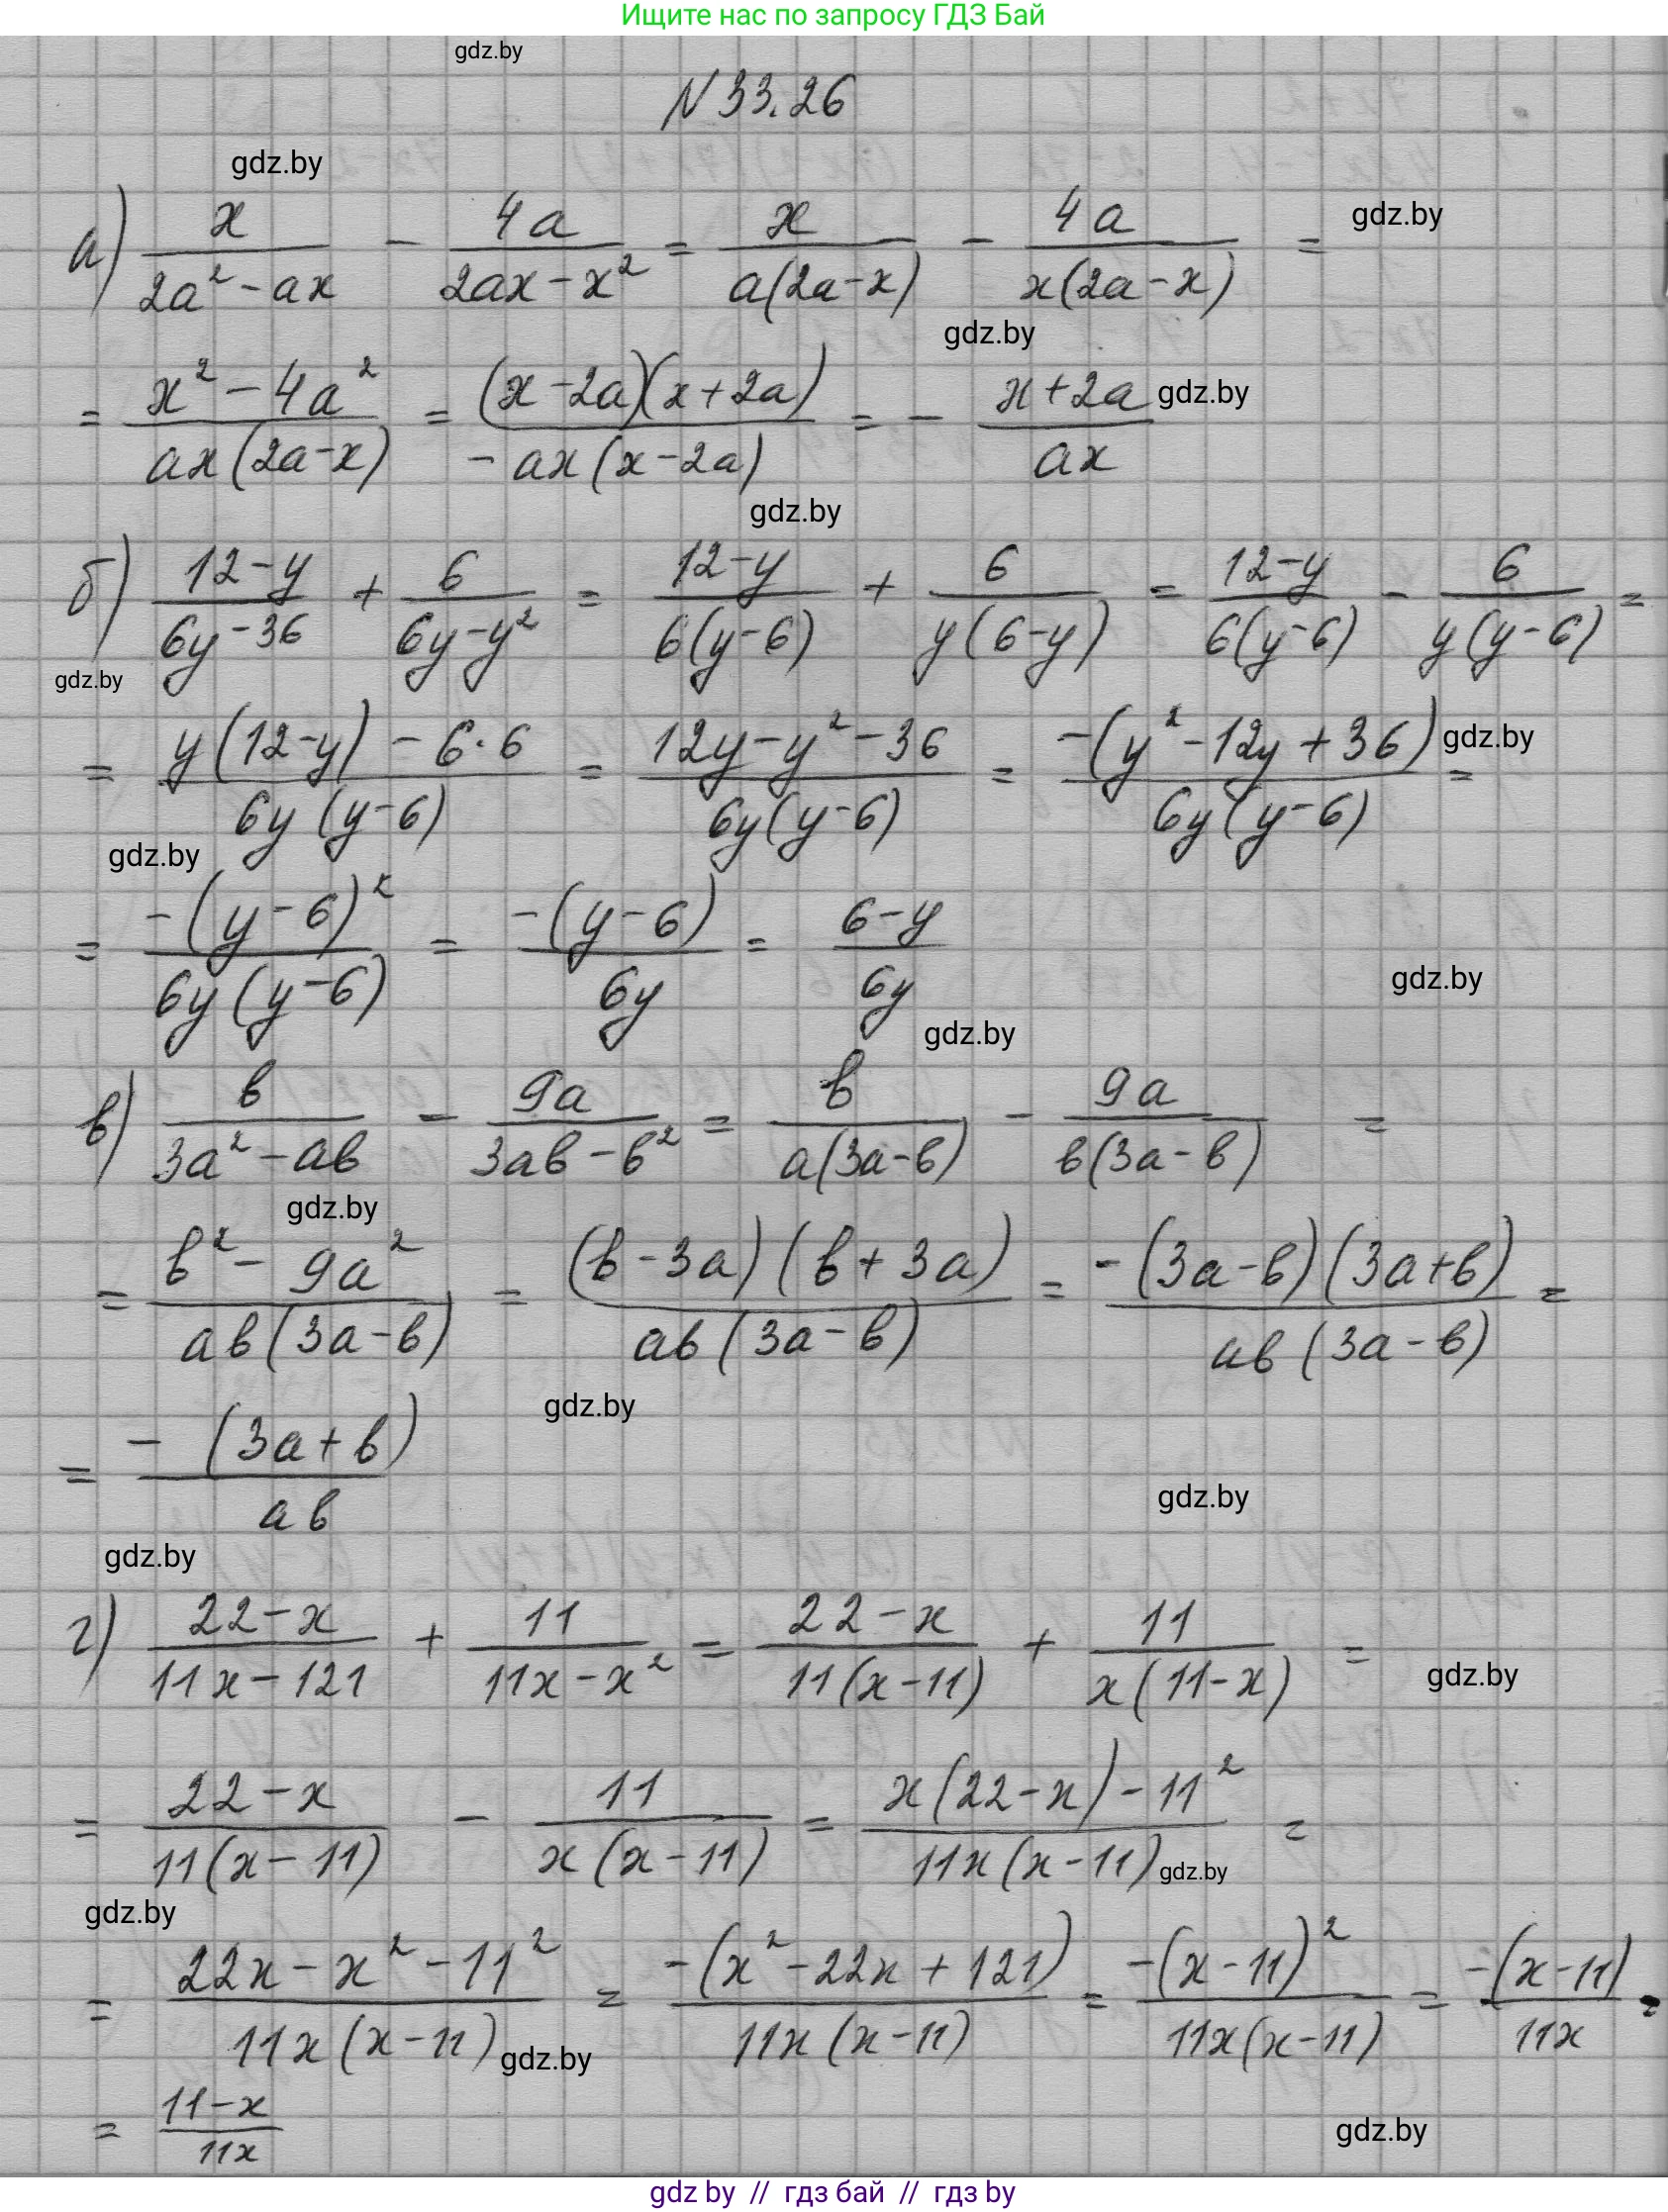 Ищите нас по запросу ГДЗ Бай
gdz.by
N 33.26
gdz.by
а) x/(2a²-ax) - 4a/(2ax-x²) = x/(a(2a-x)) - 4a/(x(2a-x)) =
gdz.by
gdz.by
= (x²-4a²)/(ax(2a-x)) = ((x-2a)(x+2a))/(-ax(x-2a)) = - (x+2a)/(ax)
gdz.by
gdz.by
б) (12-y)/(6y-36) + 6/(6y-y²) = (12-y)/(6(y-6)) + 6/(y(6-y)) = (12-y)/(6(y-6)) - 6/(y(y-6)) =
gdz.by
= (y(12-y)-6·6)/(6y(y-6)) = (12y-y²-36)/(6y(y-6)) = (-(y²-12y+36))/(6y(y-6)) =
gdz.by
gdz.by
= (-(y-6)²)/(6y(y-6)) = (-(y-6))/(6y) = (6-y)/(6y)
gdz.by
gdz.by
в) в/(3a²-aв) - 9a/(3aв-в²) = в/(a(3a-в)) - 9a/(в(3a-в)) =
gdz.by
= (в²-9a²)/(aв(3a-в)) = ((в-3a)(в+3a))/(aв(3a-в)) = (-(3a-в)(3a+в))/(aв(3a-в)) =
gdz.by
= (-(3a+в))/(aв)
gdz.by
gdz.by
г) (22-x)/(11x-121) + 11/(11x-x²) = (22-x)/(11(x-11)) + 11/(x(11-x)) =
gdz.by
= (22-x)/(11(x-11)) - 11/(x(x-11)) = (x(22-x)-11²)/(11x(x-11)) =
gdz.by
gdz.by
= (22x-x²-11²)/(11x(x-11)) = (-(x²-22x+121))/(11x(x-11)) = (-(x-11)²)/(11x(x-11)) = (-(x-11))/(11x) =
gdz.by
= (11-x)/(11x)
gdz.by
gdz by // гдз бай // гдз by